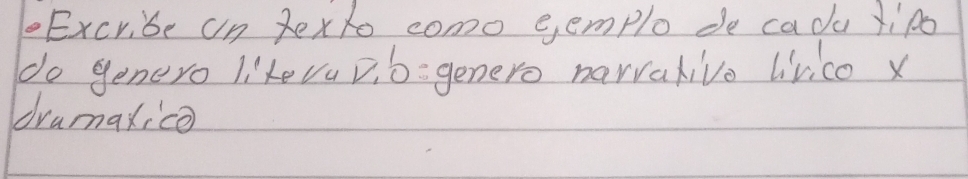 •Excribe un texto como ejemplo de cada tipo
do genero literario: genero narrativo lirico x
dramatico